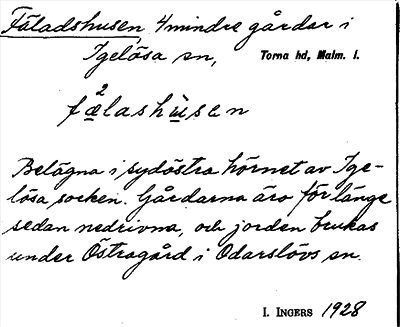 Fäladshusen, 4 mindre gårdar i
Igelösa sn, Torna hd, Malm. l.
2
fælashùsen
Belägna i sydöstra hörnet av Ige-
lösa socken. Gårdarna äro för länge
sedan nedrivna, och jorden brukas
under Östragård i Odarslövs sn.
I. INGERS 1928